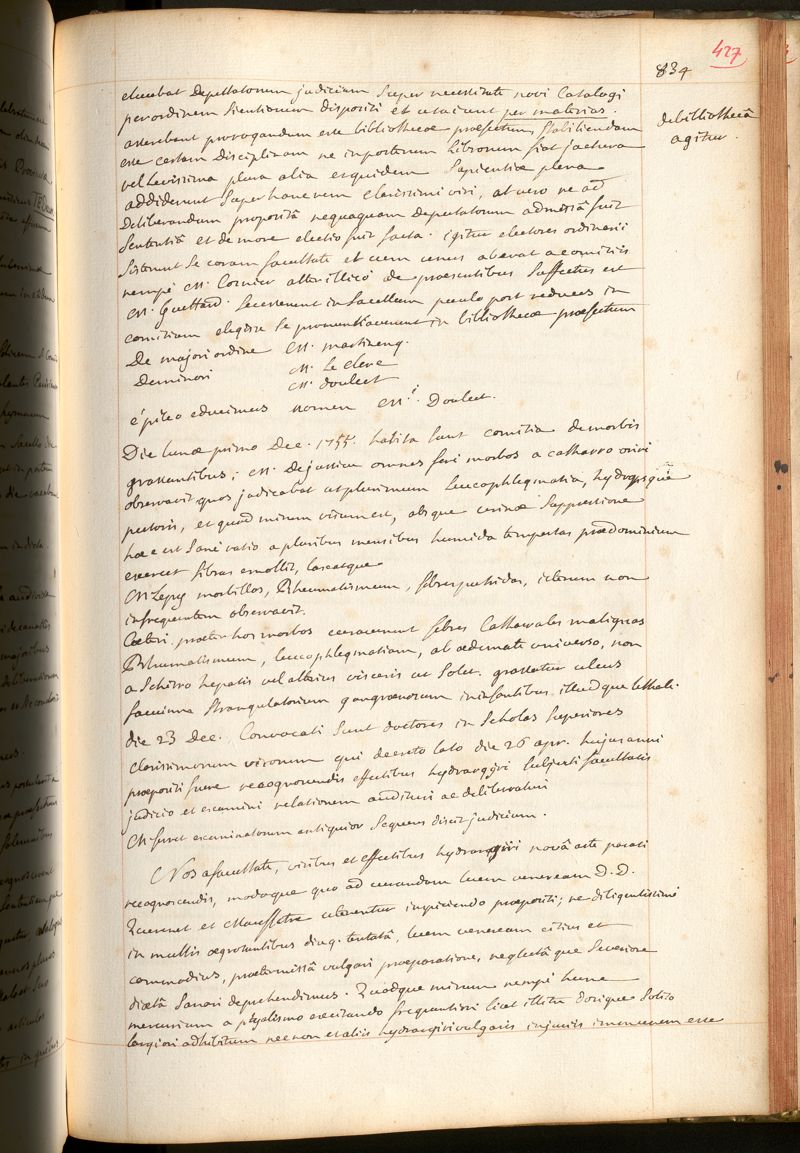 427
834
de bibliothecâ
agitur.
elucebat Deputatorum judicium super necessitate novi Catalogi
per ordinem scientiarum dispositi et ut aiunt per materias.
asserebant prorogandum esse bibliothecae praefectum, stabiliendam
esse certam Disciplinam ne in posterum librorum fiat jactura
vel levissima plura alia et quidem Sapientiae plena
addiderunt super hanc rem clarissimi viri, at vero ne ad
Deliberandum propositâ nequaquam deputatorum admissâ fuit
sententiâ et de more electio fuit facta. igitur electores ordinarii
sisterunt se coram facultate et cum unus aberat a comitiis
nempè M. Cosnier alter illicò de praesentibus suffectus est
M. Guettard. Secesserunt in sacellum paulo post reduces in
comitium elegisse se pronuntiaverunt in bibliothecae praefectum
De majori ordine M. martinenq.
De minori M. Le Cleve
M. doulcet
è pileo educimus nomen M.i Doulcet.
Die lunae primo Dec. 1755. habita sunt comitia de morbis
grassantibus; M. Dejussieu omnes ferè morbos a catharro oriri
observavit quos judicabat ut plurimum Leucophlegmatia, hydropsque
pectoris, et quod mirum visum est, absque urinae suppressione
haec est sanè ratio a pluribus mensibus humida tempestas praedominium
exercet fibras emollit, laxatque
M Lepy morbillos, Rheumatismum, febres putridas, icterum non
infrequentem observavit.
Caeteri praeter hos morbos curaverunt febres Catharrales malignas
Rhumatismum, leucophlegmatiam, ab oedemate universo, non
a Schirro hepatis vel alterius visceris ut solet. grassatur ulcus
faucium strangulatorium gangraenosum in infantibus illudque lethale.
die 23 Dec. Convocati sunt doctores in Scholas superiores
clarissimorum virorum qui decreto lato die 26 apr. hujus anni
praepositi fuere recognoscendis effectibus hydrargyri subjecti facultatis
judicio et examini relationem audituri ac deliberaturi
M. examinatorum antiquior sequens dixit judicium.
Nos a facultate, viribus et effectibus hydrargyri novâ arte parati
recognoscendis, modoque quo ad curandam luem veneream D.D.
Quesnet et utuntur inspiciendo praepositi; re diligentissimè
in multis aegrotantibus diuq. tentatâ, luem veneream citius et
commodius, praetermissâ vulgari praeparatione, neglectâque severiore
diaetâ sanari deprehendimus. Quodque mirum nempè hunc
mercurium a ptyalismo excitando frequentiori licet illitu dosique solito
largiori adhibitum nec non et aliis hydrargiri vulgaris injuriis immunem esse